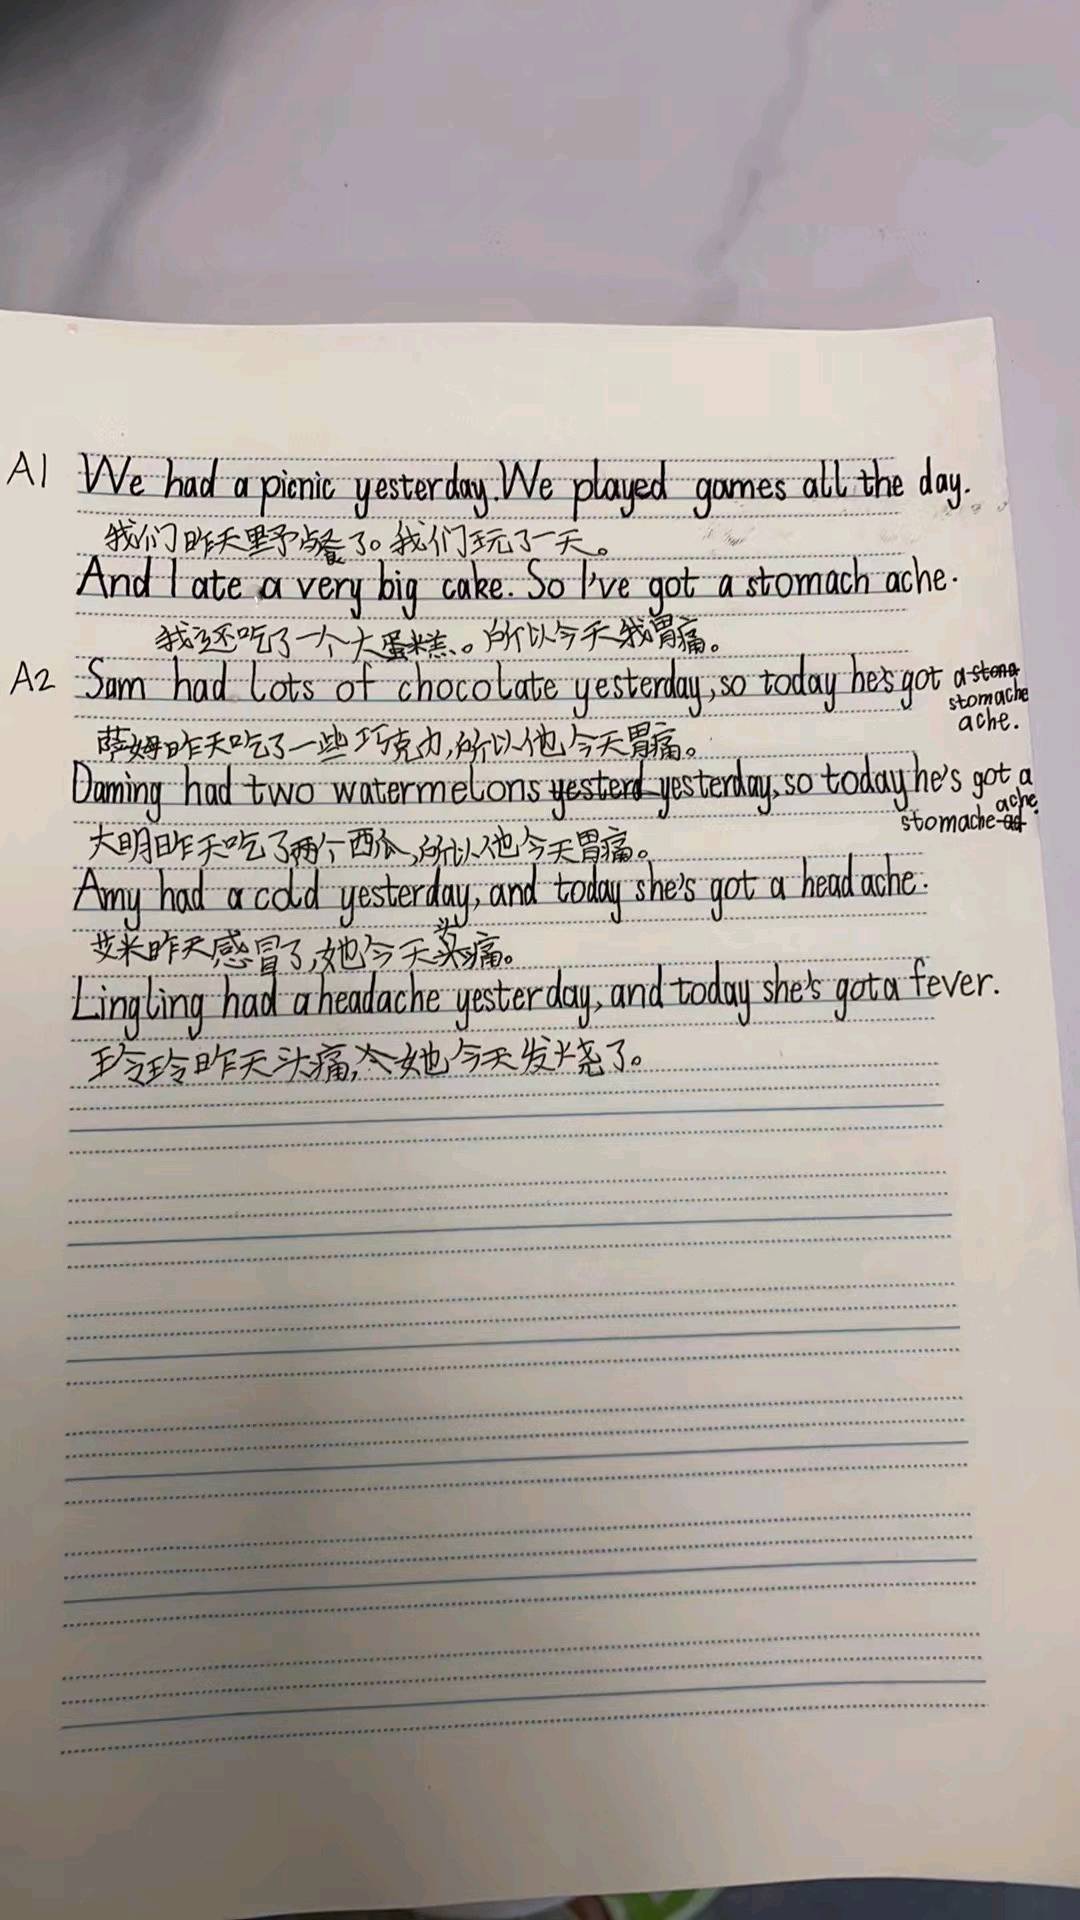 A1 We had a picnic yesterday. We played games all the day.
我们昨天野餐了。我们玩了一天。
And I ate a very big cake. So I've got a stomach ache.
我还吃了一个大蛋糕。所以今天我胃痛。
A2 Sam had lots of chocolate yesterday, so today he's got a stoma
stomache
ache.
萨姆昨天吃了一些巧克力,所以他今天胃痛。
Daming had two watermelons yesterd yesterday, so today he's got a
stomache ad ache.
大明昨天吃了两个西瓜,所以他今天胃痛。
Amy had a cold yesterday, and today she's got a head ache.
艾米昨天感冒了,她今天头痛。
Lingling had a headache yesterday, and today she's got a fever.
玲玲昨天头痛,今她今天发烧了。